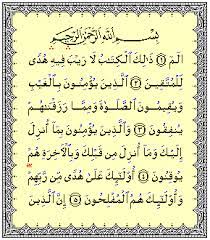 بِسْمِ اللَّهِ الرَّحْمَٰنِ الرَّحِيمِ
الٓمٓ ۝١ ذَٰلِكَ الْكِتَٰبُ لَا رَيْبَ فِيهِ هُدًى
لِّلْمُتَّقِينَ ۝٢ الَّذِينَ يُؤْمِنُونَ بِالْغَيْبِ
وَيُقِيمُونَ الصَّلَوٰةَ وَمِمَّا رَزَقْنَٰهُمْ
يُنفِقُونَ ۝٣ وَالَّذِينَ يُؤْمِنُونَ بِمَا أُنزِلَ
إِلَيْكَ وَمَا أُنزِلَ مِن قَبْلِكَ وَبِالْآخِرَةِ هُمْ
يُوقِنُونَ ۝٤ أُولَٰئِكَ عَلَىٰ هُدًى مِّن رَّبِّهِمْ
وَأُولَٰئِكَ هُمُ الْمُفْلِحُونَ ۝٥ إِنَّ الَّذِينَ